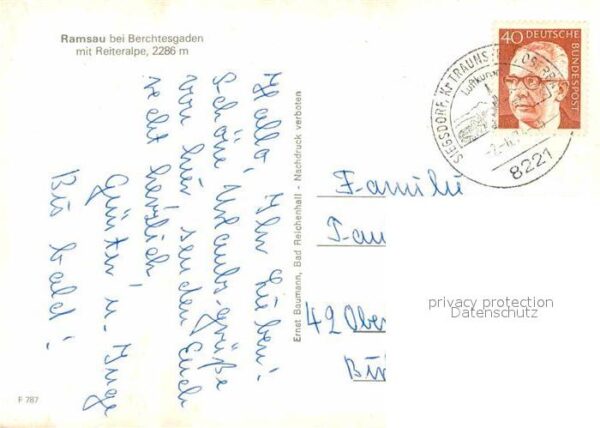 Ramsau bei Berchtesgaden
mit Reiteralpe, 2286 m
Hallo, Ihr Lieben!
Schöne Urlaubs-grüße
von hier senden Euch
recht herzlich
Günter u. Inge
Bis bald!
F 787
Ernst Baumann, Bad Reichenhall - Nachdruck verboten
40
DEUTSCHE
BUNDESPOST
SIEGSDORF, Kr TRAUNS
8221
Familie
42 Ober
privacy protection
Datenschutz